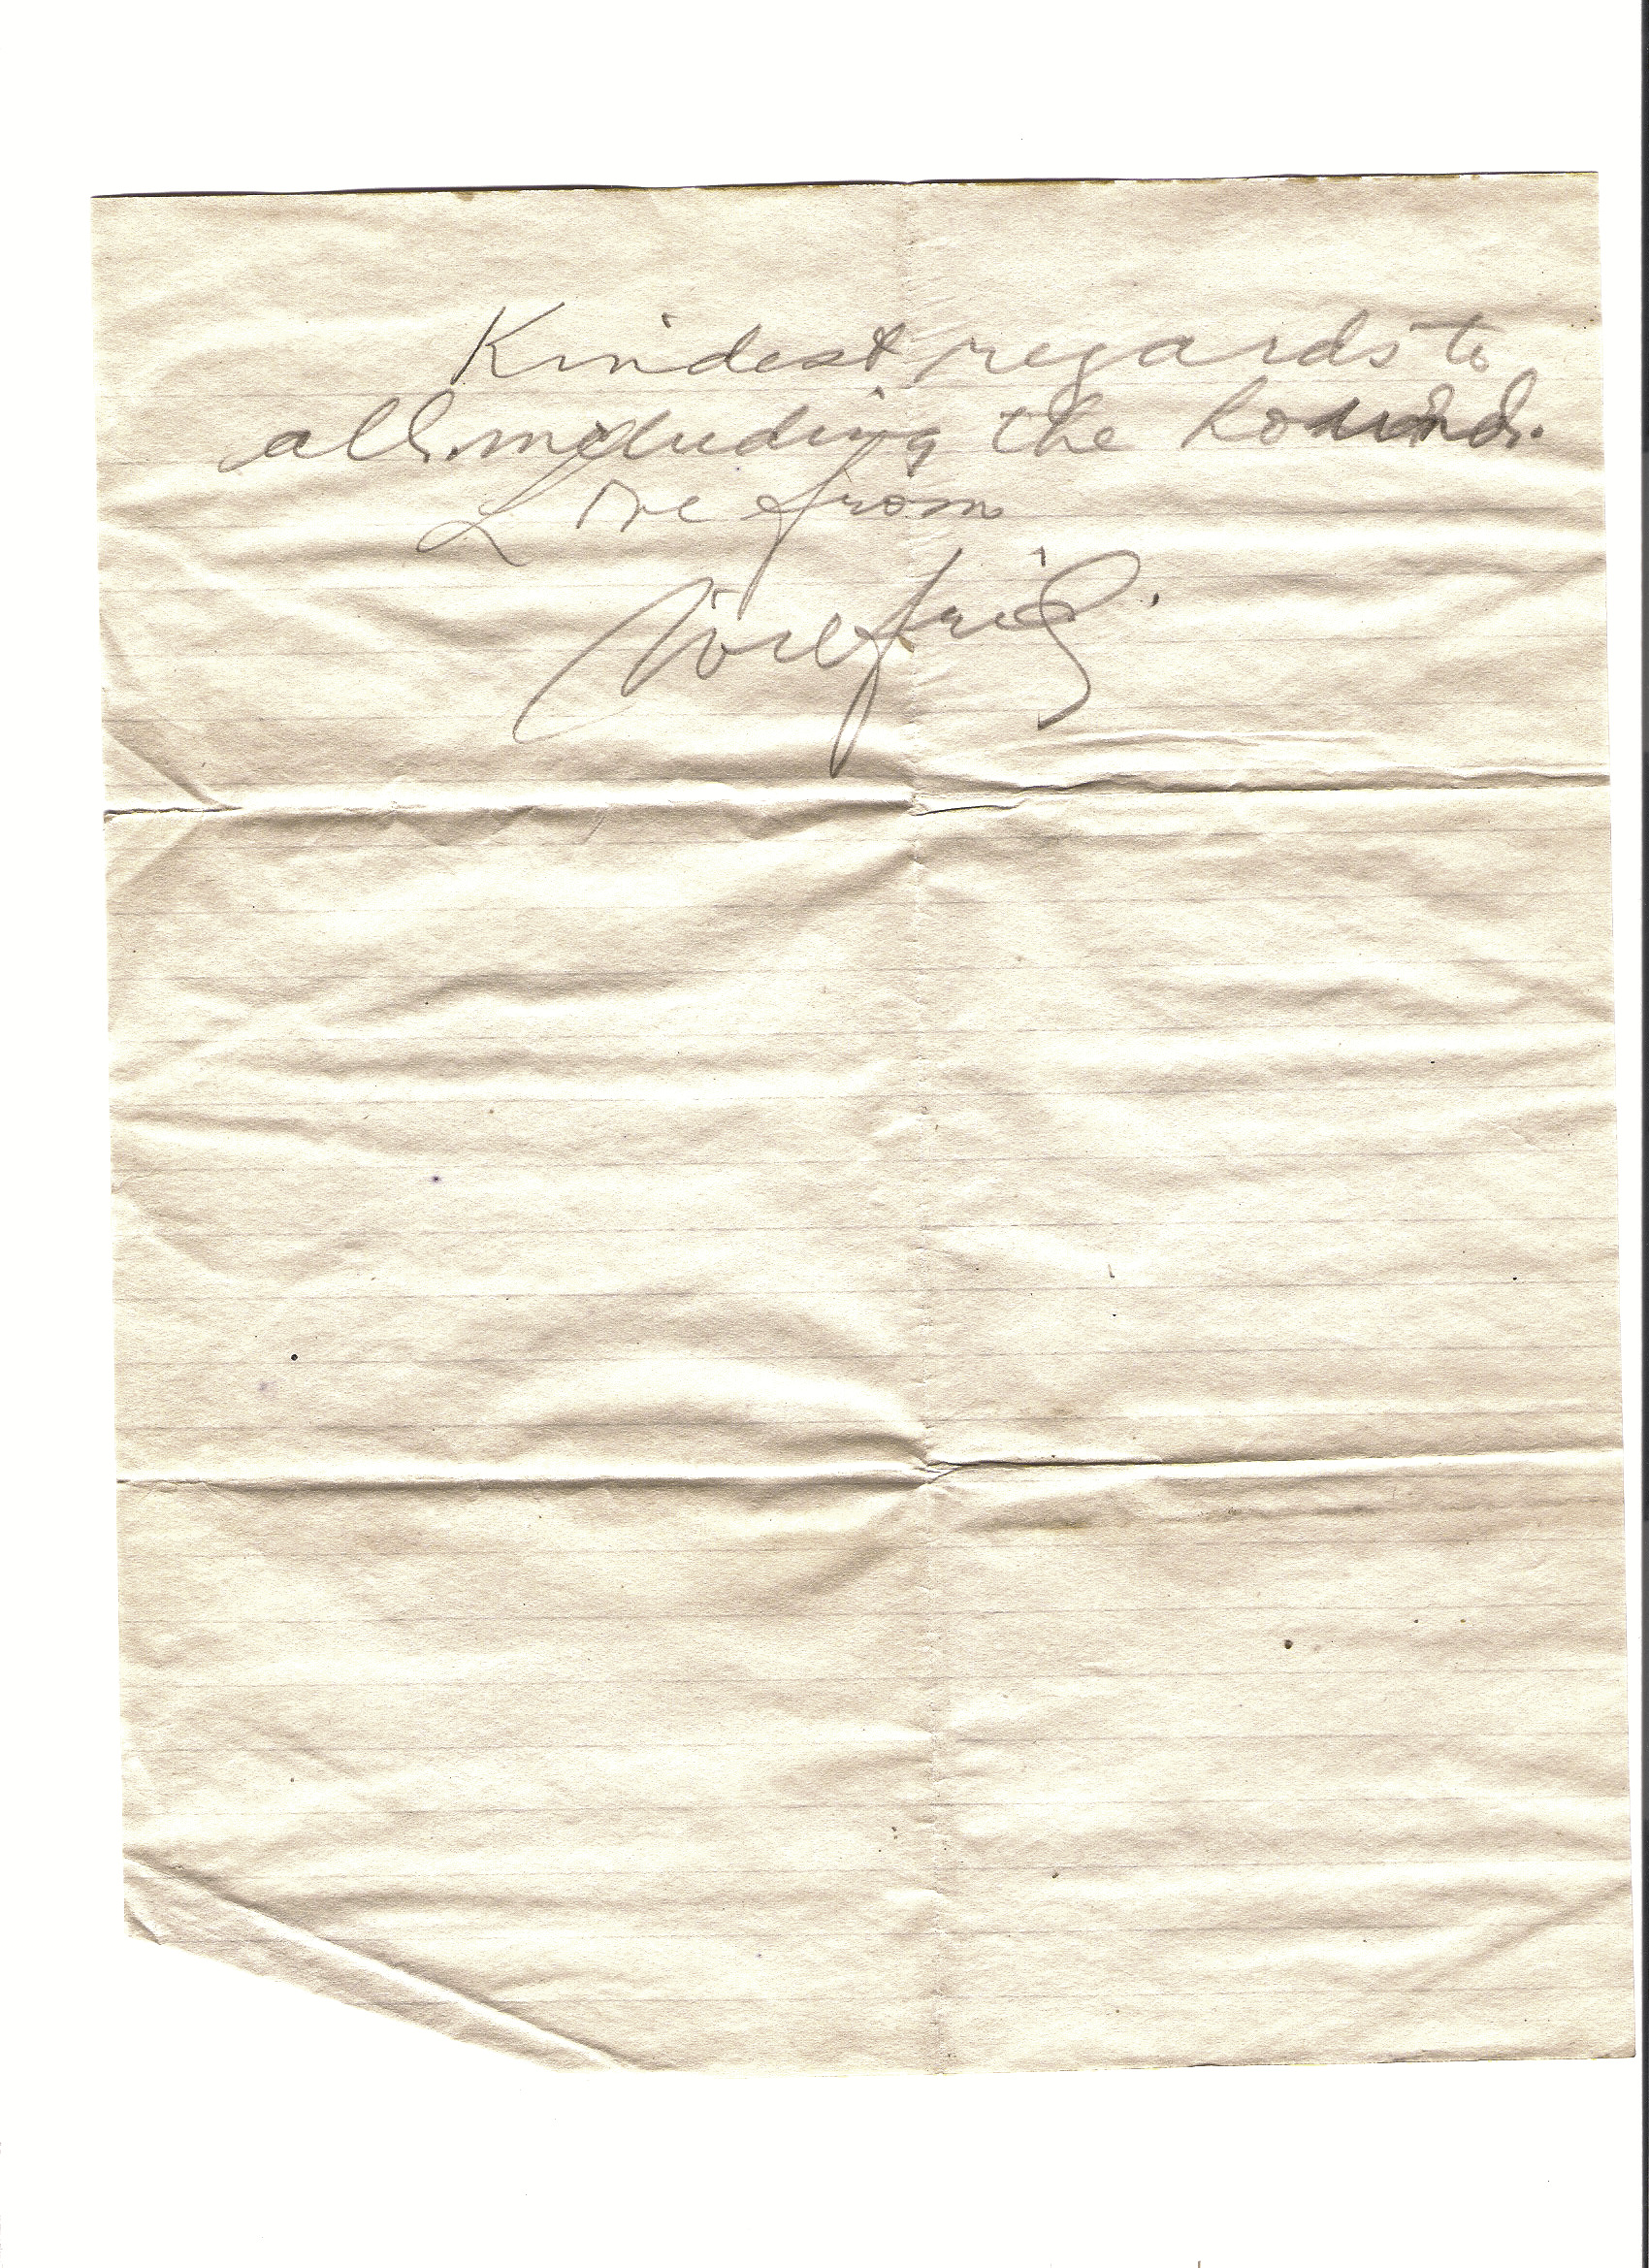 Kindest regards to
all. including the hounds.
Love from
Wilfrid.